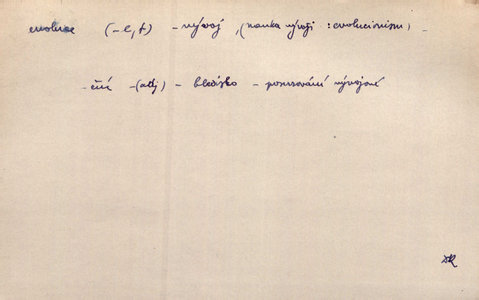 evoluce (-e, f) - vývoj, (nauka vývoji : evolucionism) -
- ční - (adj) - hledisko - posuzování vývojové